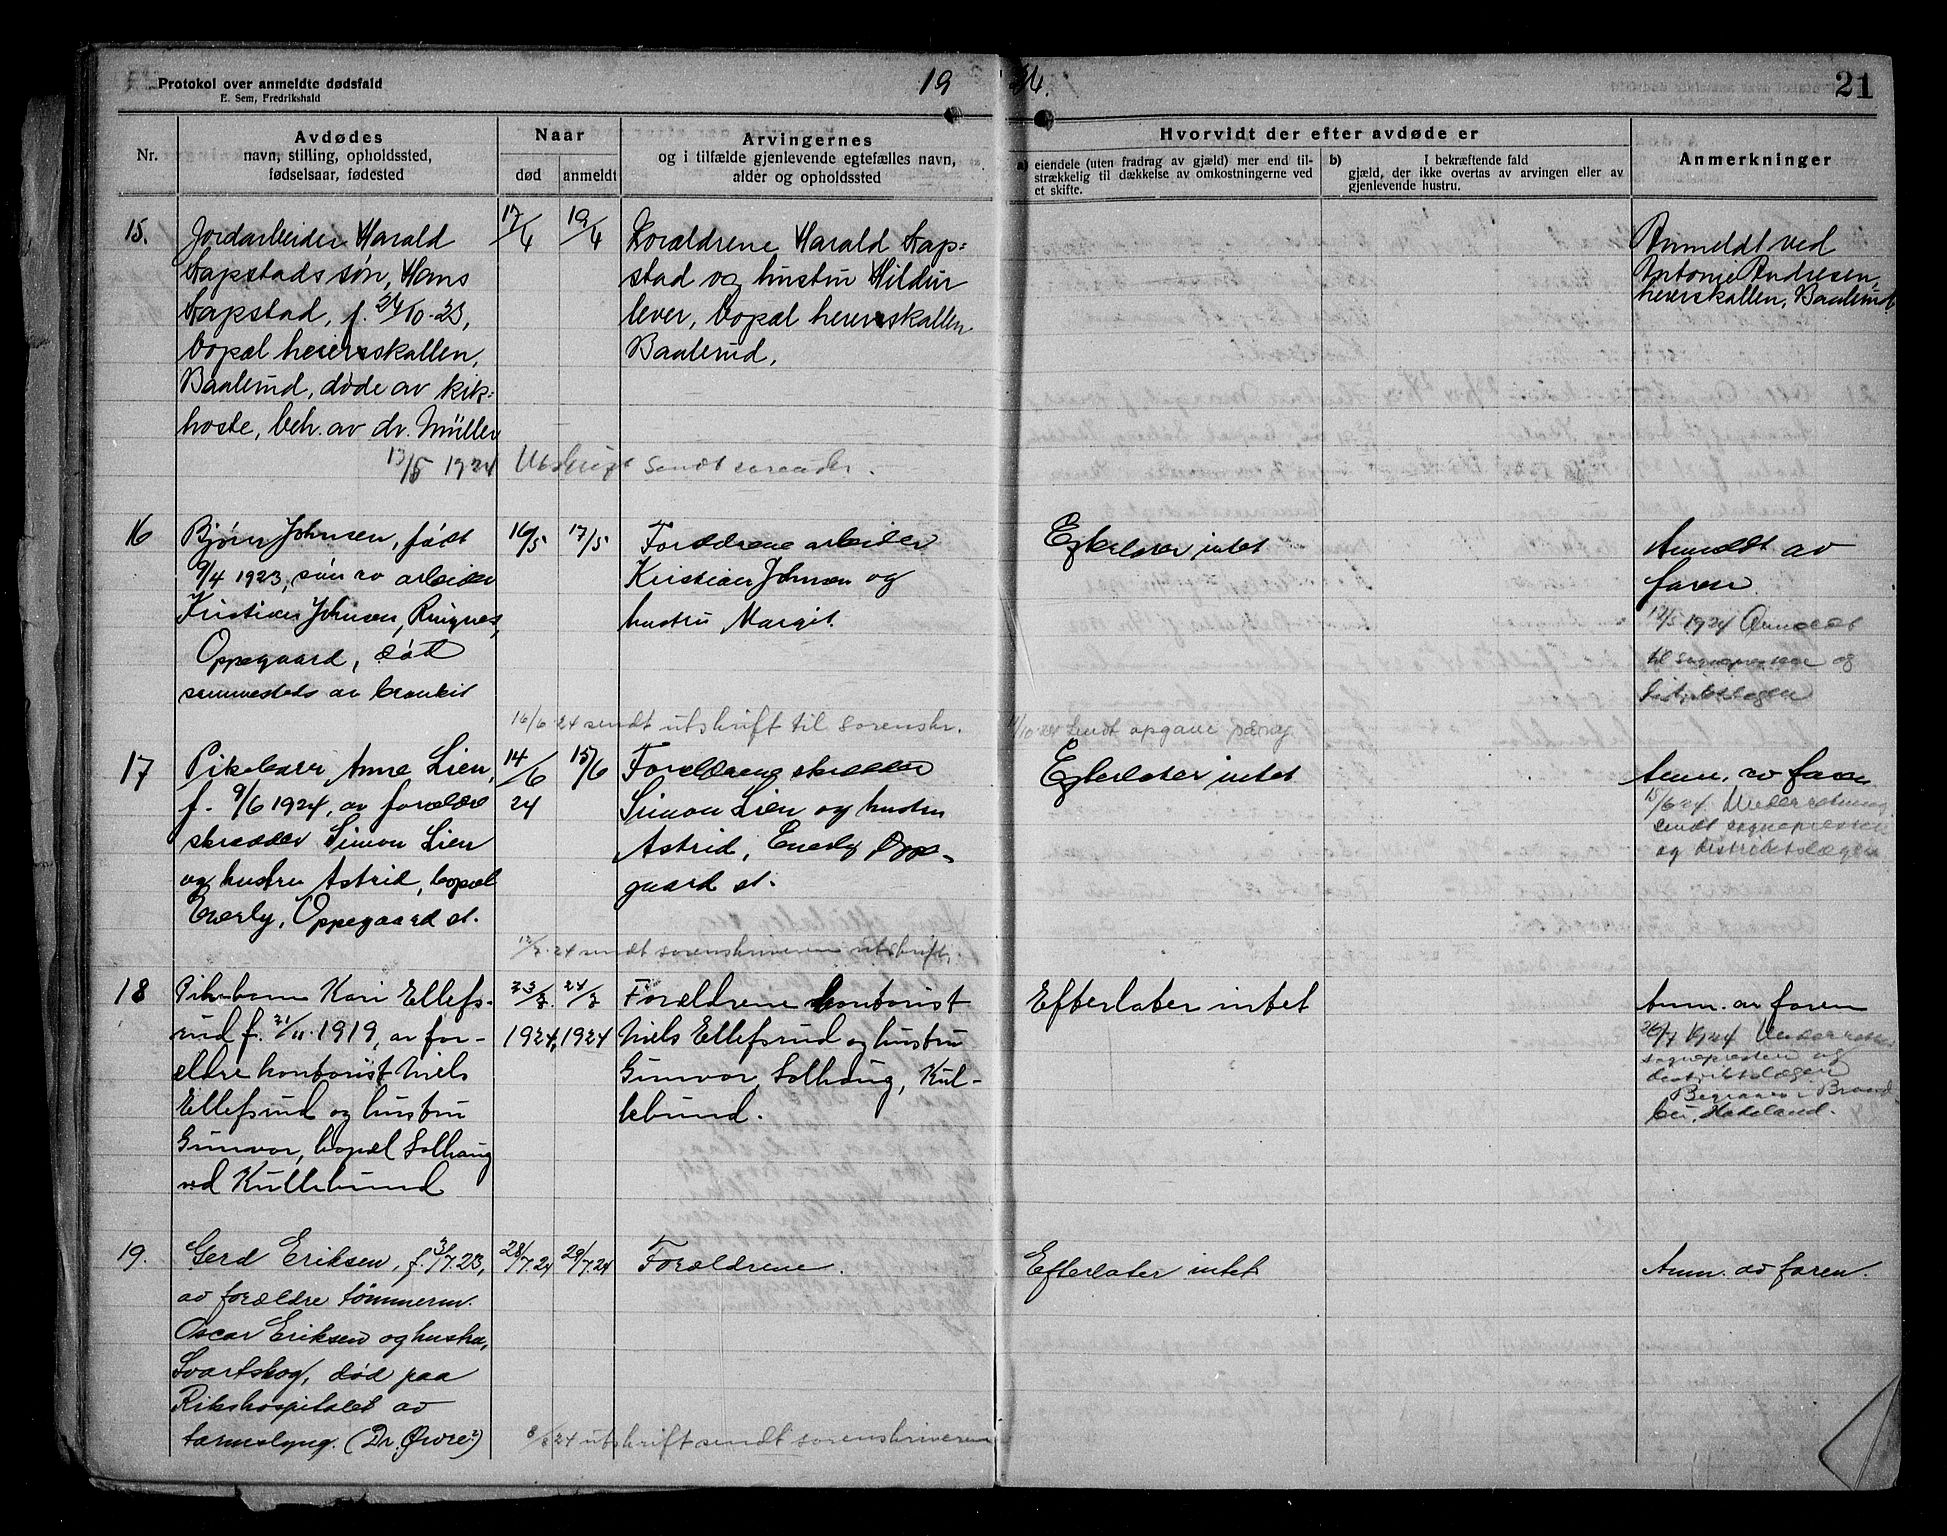 Protokol over anmeldte dødsfald
E. Sem, Fredrikshald
19 24.
21
Nr.
Avdødes
navn, stilling, opholdssted,
fødselsaar, fødested
Naar
død
anmeldt
Arvingernes
og i tilfælde gjenlevende egtefælles navn,
alder og opholdssted
Hvorvidt der efter avdøde er
a) eiendele (uten fradrag av gjæld) mer end til-
strækkelig til dækkelse av omkostningerne ved
et skifte.
b) I bekræftende fald
gjæld, der ikke overtas av arvingen eller av
gjenlevende hustru.
Anmerkninger
15.
Jordarbeider Harald
Tapstads søn, Hans
Tapstad, f. 24/10-23,
bopæl
Baalerud, døde av kik-
hoste, beh. av dr. Müller
17/4
19/4
Forældrene Harald Tap-
stad og hustru Hildur
lever, bopæl
Baalerud.
Anmeldt ved
Antonie Andresen,
Baalerud
13/5 1924 Utskrift sendt
16
Bjørn Johnsen, født
9/4 1923, søn av arbeider
Kristian Johnsen, Ringnes,
Oppegaard, død
sammesteds av bronkit
16/5
17/5
Forældrene arbeider
Kristian Johnsen og
hustru Margit.
Efterlater intet
Anmeldt av
faren.
17/5 1924 Anmeldt
til sogneprest og
distriktslægen
16/6-24 sendt utskrift til sorenskr.
sendt opgave
17
Pikebarn Anne Lien,
f. 9/6 1924, av forældre
skrædder Simon Lien
og hustru Astrid, bopæl
Enerly, Oppegaard st.
14/6
24
15/6
Forældrene skrædder
Simon Lien og hustru
Astrid, Enerly Oppe-
gaard st.
Efterlater intet
Anm. av faren
15/6 24. Underretning
sendt sognepresten
og distriktslægen
12/7-24 sendt sorenskriveren utskrift.
18
Pikebarn Kari Ellefs-
rud f. 21/11-1919, av for-
eldre kontorist Niels
Ellefsrud og hustru
Gunvor, bopæl Solhaug
ved Kullebund
23/7.
1924,
24/7
1924
Forældrene kontorist
Niels Ellefsrud og hustru
Gunvor, Solhaug, Kul-
lebund.
Efterlater intet
Anm. av faren
26/7 1924 Underrettet
sognepresten og
distriktslægen
Begraves i Brand-
bu, Hadeland.
19.
Gerd Eriksen, f. 3/7.23,
av forældre tømmerm.
Oscar Eriksen og hustru,
Svartskog, død paa
Rikshospitalet av
tarmslyng. (Dr. Øvre?)
28/7.24
29/7.24
Forældrene.
Efterlater intet
Anm. av faren.
8/8 24 utskrift sendt sorenskriveren